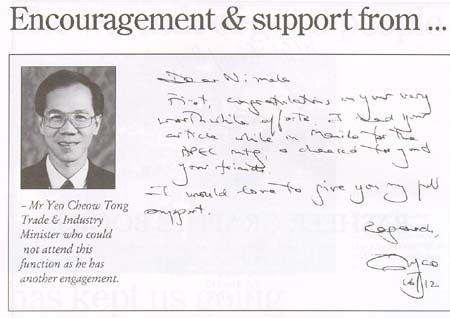 Encouragement & support from ...
Dear Nimala
First, congratulations on your very
worthwhile efforts. I read your
article while in Manila for the
APEC mtg, & cheered for you &
your friends.
I would love to give you my full
support.
Regards,
16/12
– Mr Yeo Cheow Tong
Trade & Industry
Minister who could
not attend this
function as he has
another engagement.
has kept us going